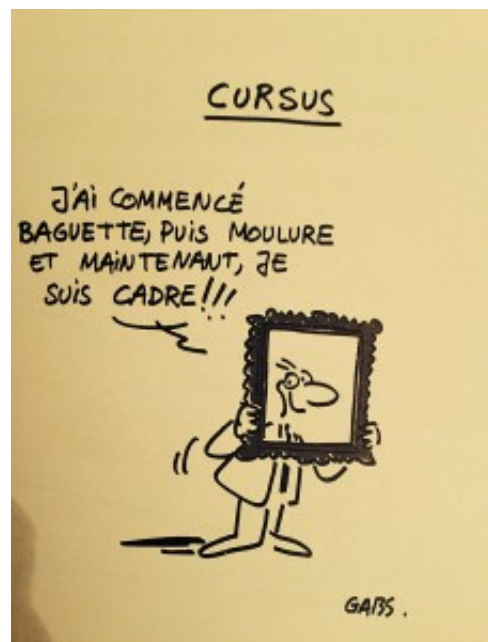 CURSUS
J'AI COMMENCÉ
BAGUETTE, PUIS MOULURE
ET MAINTENANT, JE
SUIS CADRE!!!
GABS.